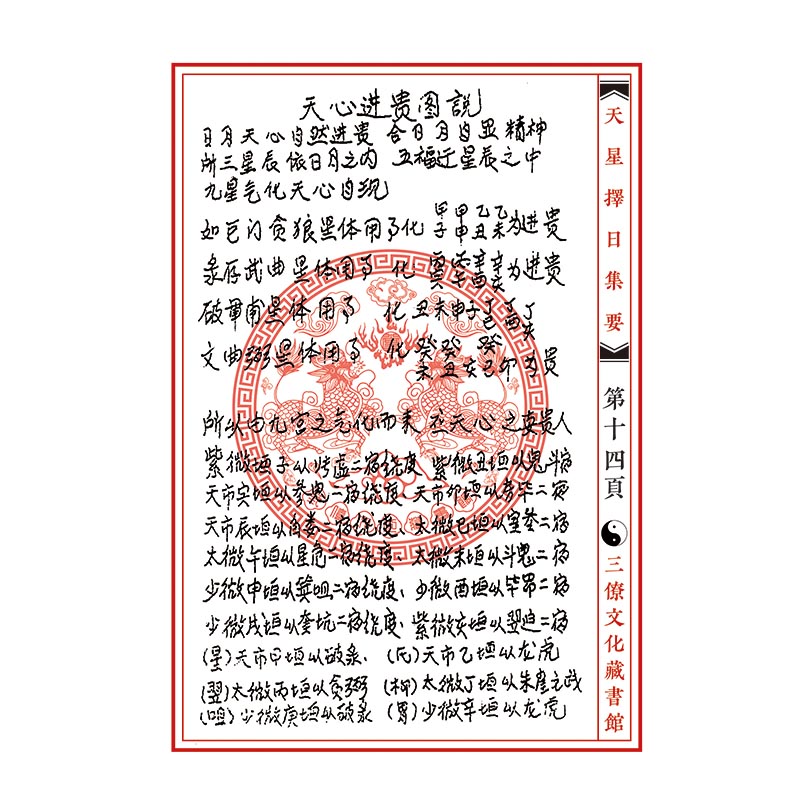 天心进贵图説
日月天心自然进贵 合日月自显精神
所三星辰依日月之内 五福近星辰之中
九星气化天心自现
如巨门贪狼星体用了化 甲子 甲申 乙丑 乙未为进贵
武曲星体用了 化 辛酉 辛亥为进贵
破军甫星体用了 化 丑未申子丁巳 丁酉 丁亥
文曲弼星体用了 化 癸未 癸丑 癸亥 癸巳 卯为贵
所以由九宫之气化而来 天心之真贵人
紫微垣子以 虚二宿绕度 紫微丑垣以鬼斗宿
天市寅垣以参鬼二宿绕度、天市卯垣以房毕二宿
天市辰垣以角娄二宿绕度、太微巳垣以室娄二宿
太微午垣以星危二宿绕度、太微未垣以斗鬼二宿
少微申垣以箕 二宿绕度、少微酉垣以毕昴二宿
少微戌垣以奎 二宿绕度、紫微亥垣以翌 二宿
(星)天市甲垣以破 、(氏)天市乙垣以龙虎
(翌)太微丙垣以贪弼 (柳)太微丁垣以朱 之武
少微庚垣以破 (胃)少微辛垣以龙虎
天星擇日集要
第十四頁
三僚文化藏書館